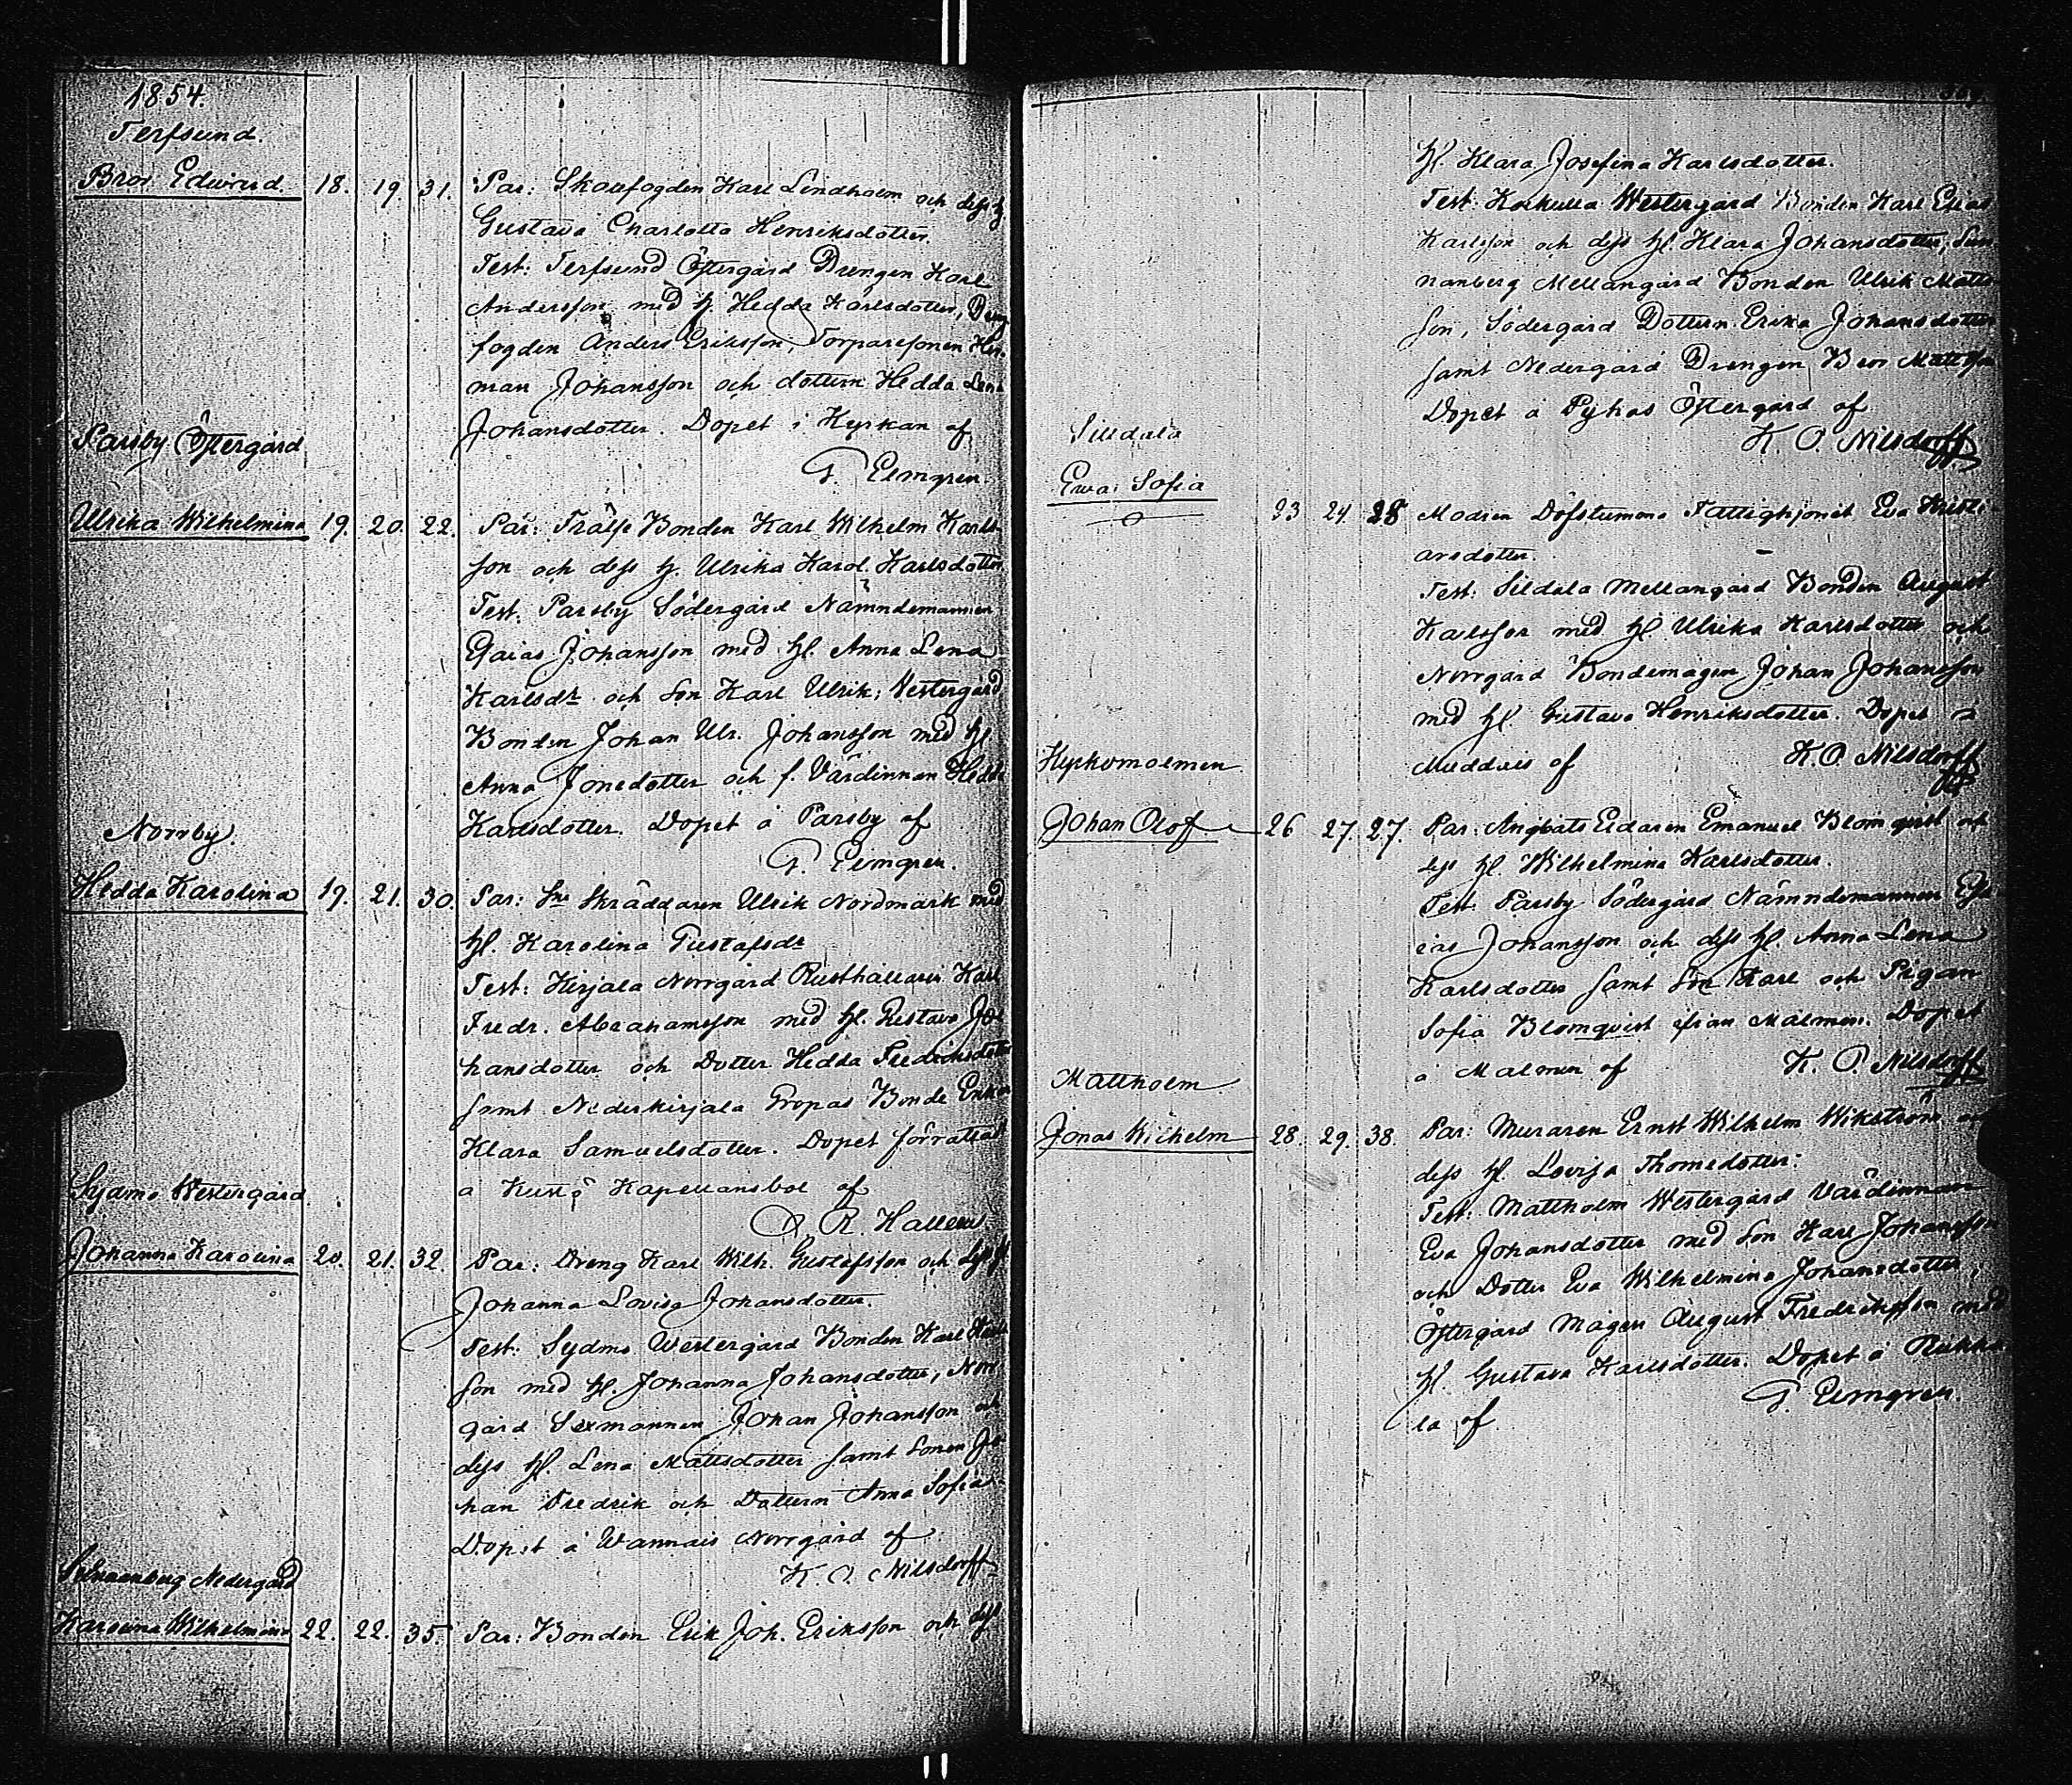 1854.
Terfsund.
Bror Edvard. 18. 19. 31. Par: Skollfogden Karl Lindholm och dess h.
Gustava Charlotta Henriksdotter.
Test: Terfsund Östergård Drengen Karl
Andersson med h. Hedda Karlsdotter, Dreng
fogden Anders Eriksson, Torparesonen Her-
man Johansson och dottern Hedda Lena
Johansdotter. Döpet i Kyrkan af
G. Elmgren.
Parsby Östergård
Ulrika Wilhelmina 19. 20. 22. Par: Frälse Bonden Karl Wilhelm Karls-
son och dess h. Ulrika Karol. Karlsdotter.
Test. Parsby Södergård Nämndemannen
Esaias Johansson med hl. Anna Lena
Karlsdr. och Son Karl Ulrik; Westergård
Bonden Johan Ulr. Johansson med hl
Anna Jonedotter och f. Värdinnan Hedda
Karlsdotter. Döpet å Parsby af
G. Elmgren.
Norrby.
Hedda Karolina 19. 21. 30. Par: Skräddaren Ulrik Nordmark med
hl. Karolina Gustafsdr
Test: Kirjala Norrgård Rusthållaren Karl
Fredr. Abrahamsson med hl. Gustava Jo-
hansdotter och Dotter Hedda Fredriksdotter
samt Nederkirjala Propas Bonde Enkan
Klara Samuelsdotter. Döpet förrättat
å Kustö Kapellansbol af
R. Hallen
Sydmo Westergård
Johanna Karolina 20. 21. 32. Par: Dreng Karl Wilh. Gustafsson och dess hl
Johanna Lovisa Johansdotter.
Test: Sydmo Westergård Bonden Karl Karls-
son med hl. Johanna Johansdotter, Norr-
gård Sexmannen Johan Johansson och
dess hl. Lena Mattsdotter samt Sonen Jo-
han Fredrik och Dottern Anna Sofia.
Döpet å Wannais Norrgård af
K. O. Nilsdorff
Sunnanberg Nedergård
Karolina Wilhelmina 22. 22. 35. Par: Bonden Erik Joh. Eriksson och dess
hl. Klara Josefina Karlsdotter.
Test: Korkulla Westergård Bonden Karl Elias
Karlsson och dess hl. Klara Johansdotter, Sun-
nanberg Mellangård Bonden Ulrik Matts-
son, Södergård Dottern Erika Johansdotter
samt Nedergård Drengen Bror Mattsson
Döpet å Pykas Östergård af
K. O. Nilsdorff
Silldala
Ewa Sofia 23 24. 28 Modren Döfstumma Fattighjonet Eva Kristi-
ansdotter.
Test: Sildala Mellangård Bonden August
Karlsson med hl Ulrika Karlsdotter och
Norrgård Bondemågen Johan Johansson
med hl. Gustava Henriksdotter. Döpet å
Muddais af K. O. Nilsdorff
Kyrkomalmen
Johan Olof 26 27. 27. Par: Ångbåts Eldaren Emanuel Blomqvist och
dess hl. Wilhelmina Karlsdotter.
Test: Parsby Södergård Nämndemannen Esa-
ias Johansson och dess hl. Anna Lena
Karlsdotter samt Son Karl och Pigan
Sofia Blomqvist ifrån Malmen. Döpet
å Malmen af K. O. Nilsdorff
Mattholm
Jonas Wilhelm 28. 29. 38. Par: Muraren Ernst Wilhelm Wikström och
dess hl. Lovisa Thomedotter.
Test: Mattholm Westergård Värdinnan
Eva Johansdotter med Son Karl Johansson
och Dotter Eva Wilhelmina Johansdotter,
Östergård Mågen August Fredriksson med
hl. Gustava Karlsdotter. Döpet å
la af G. Elmgren.